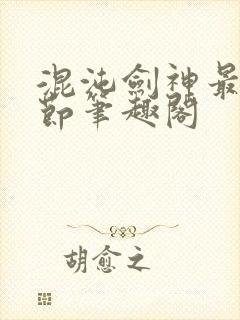 混沌劍神最
節筆趣閣
胡愈之